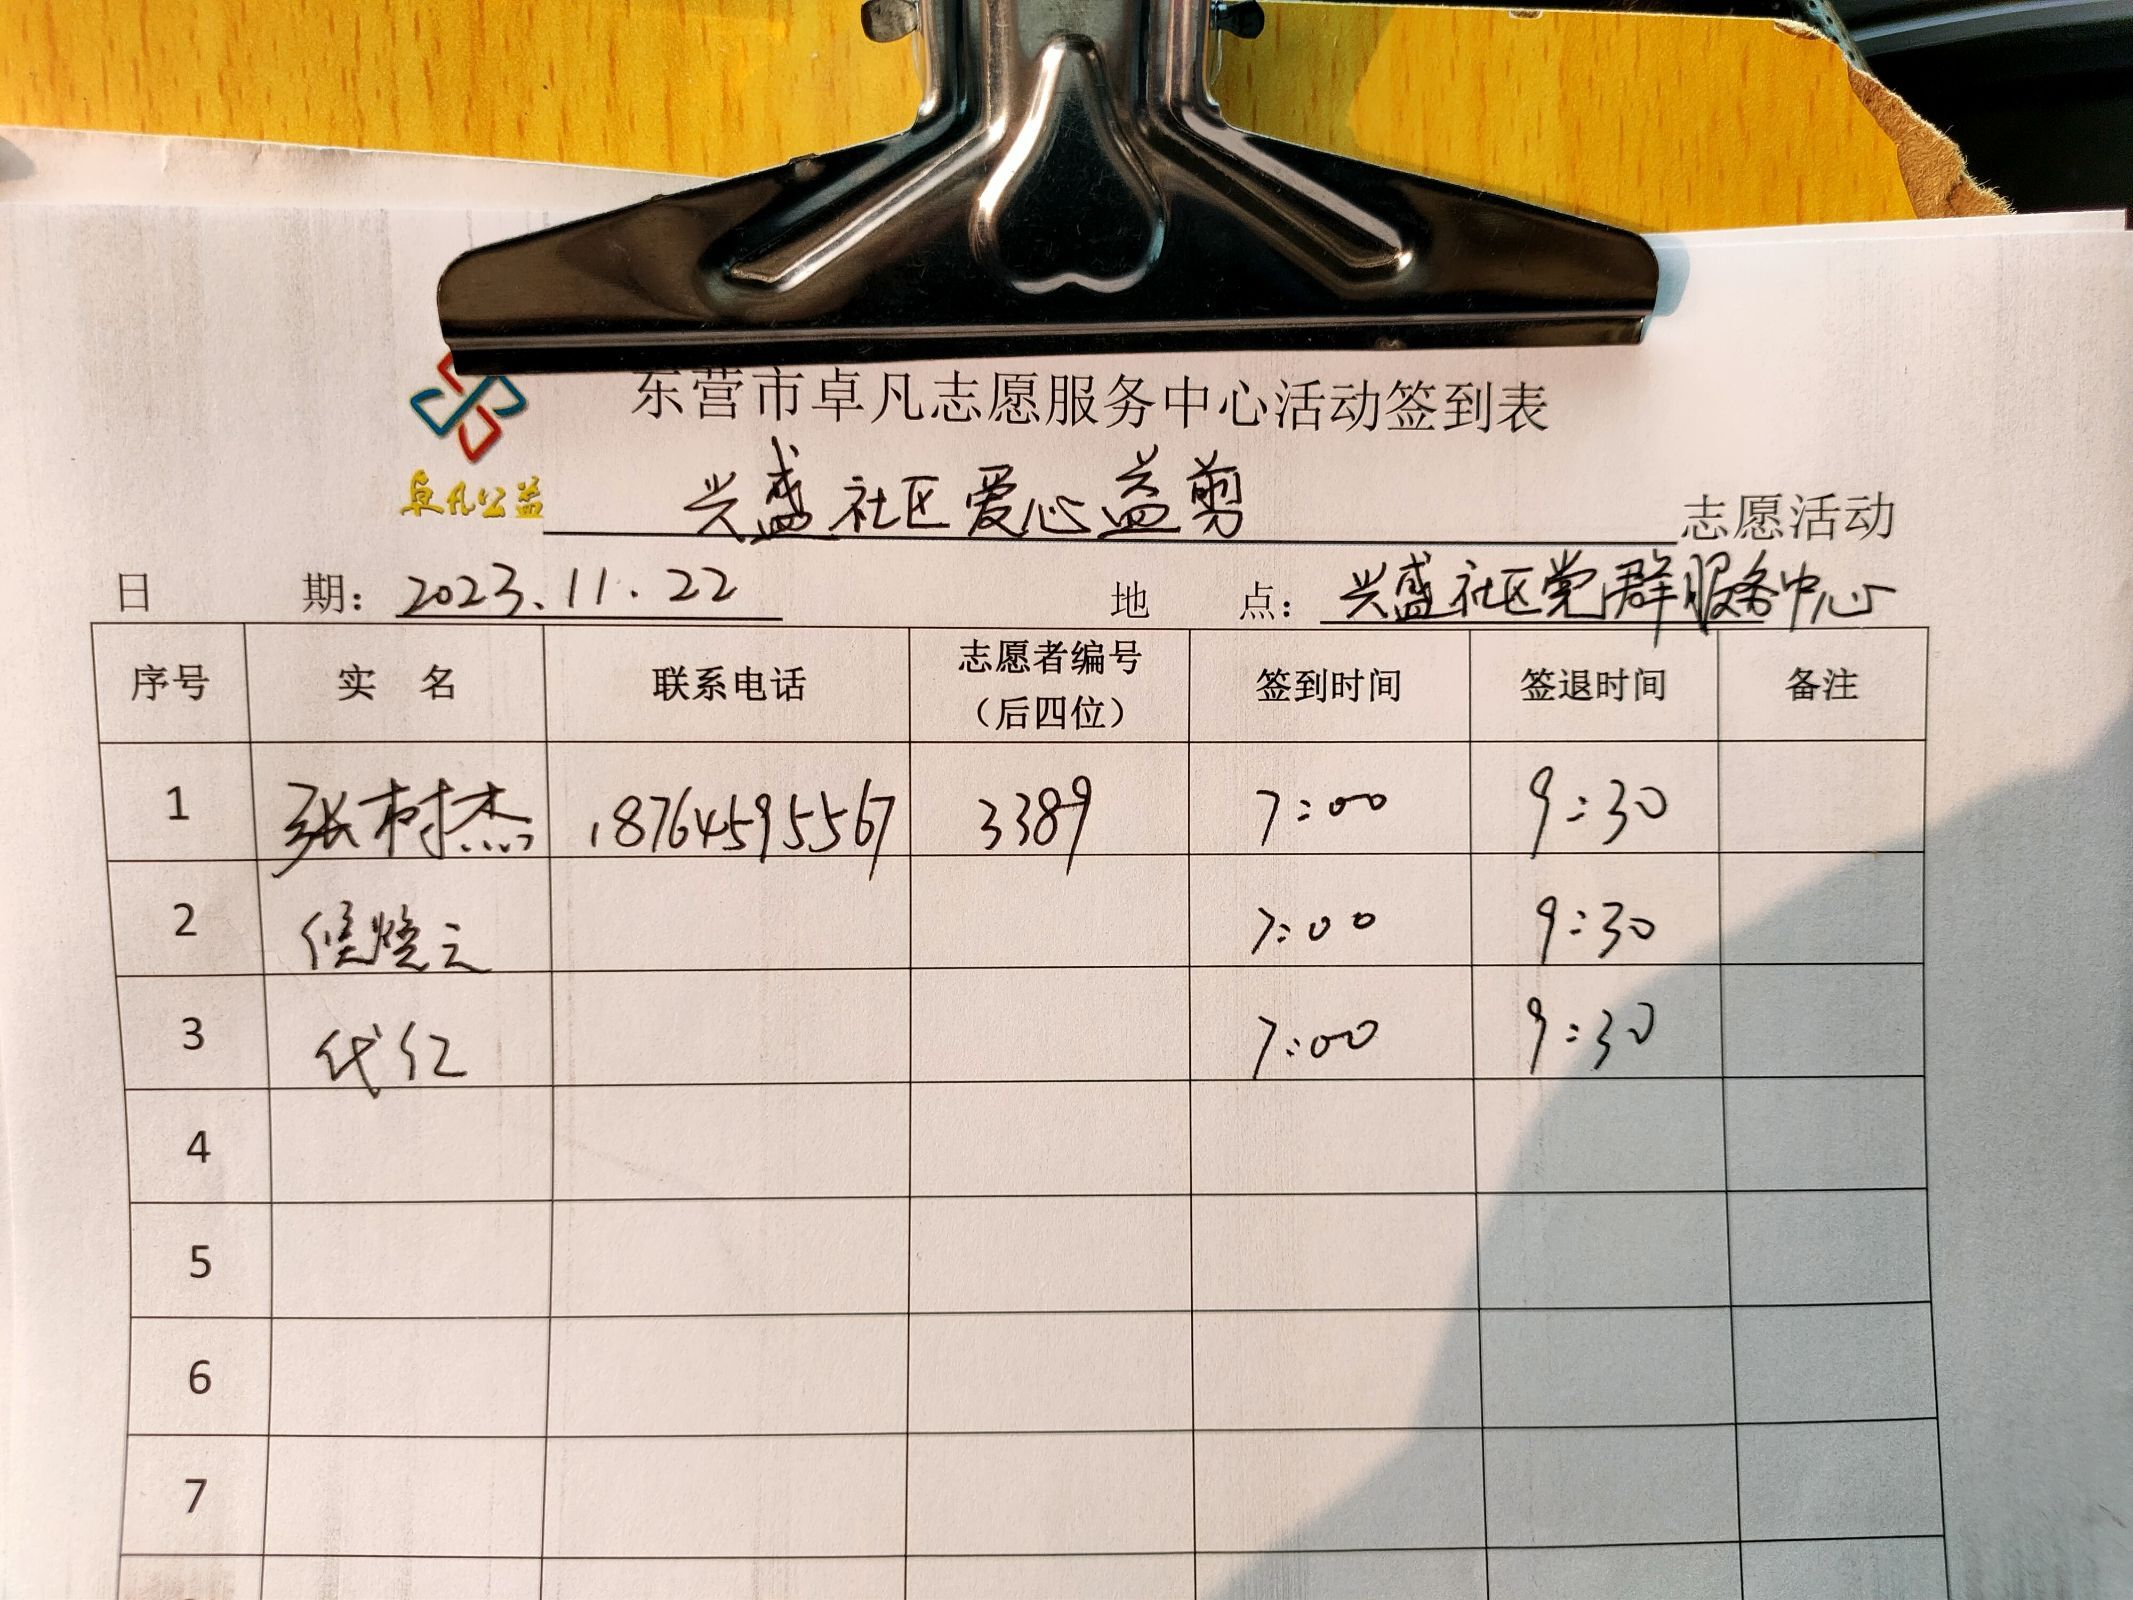 东营市卓凡志愿服务中心活动签到表
卓凡公益
兴盛社区爱心益剪 志愿活动
日 期：2023.11.22 地 点：兴盛社区党群服务中心
序号 实 名 联系电话 志愿者编号（后四位） 签到时间 签退时间 备注
1 张树杰 18764595567 3389 7:00 9:30
2 侯燒云 7:00 9:30
3 代红 7:00 9:30
4
5
6
7